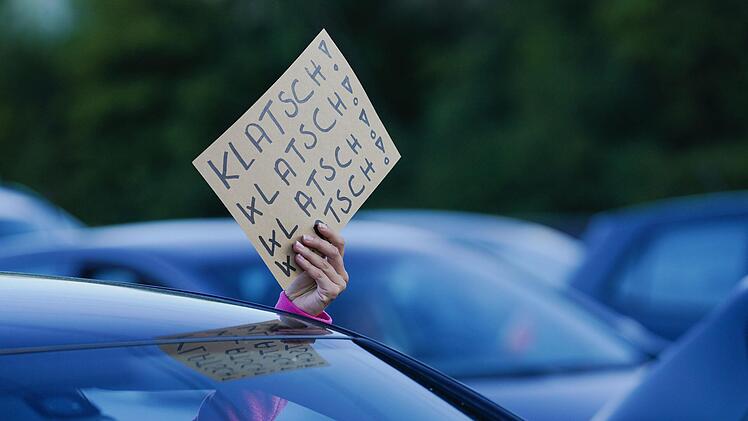 KLATSCH!
KLATSCH!
KLATSCH!
KLATSCH!